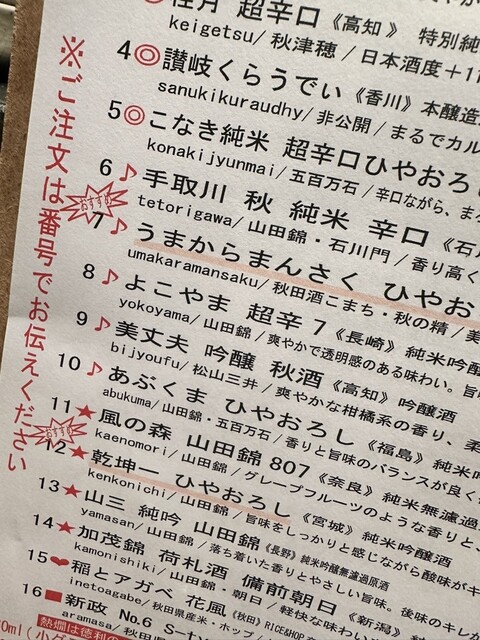 桂月 超辛口 《高知》 特別純
keigetsu/秋津穂/日本酒度+11
4◎讃岐くらうでぃ 《香川》本醸造
sanukikuraudhy/非公開/まるでカル
5◎こなき純米 超辛口ひやおろし
konakijyunmai/五百万石/辛口ながら、まろ
6♪手取川 秋 純米 辛口 《石川
tetorigawa/山田錦・石川門/香り高く
おすすめ
7♪うまからまんさく ひやお
umakaramansaku/秋田酒こまち・秋の精/美
8♪よこやま 超辛7《長崎》純米吟醸
yokoyama/山田錦/爽やかで透明感のある味わい。旨
9♪美丈夫 吟醸 秋酒 《高知》吟醸酒
bijyoufu/松山三井/爽やかな柑橘系の香り、柔
10♪あぶくま ひやおろし《福島》純米吟
abukuma/山田錦・五百万石/香りと旨味のバランスが良く
11★風の森 山田錦 807《奈良》純米無濾過
kaenomori/山田錦/グレープフルーツのような香りと、
おすすめ
12★乾坤一 ひやおろし《宮城》純米吟醸酒
kenkonichi/山田錦/旨味をしっかりと感じながら酸味がキ
13★山三 純吟 山田錦《長野》純米吟醸無濾過原酒
yamasan/山田錦/落ち着いた香りとやさしい旨味。後味のキレが
14★加茂錦 荷札酒 備前朝日《新潟》純
kamonishiki/山田錦・朝日/軽快な味わい
15♥稲とアガベ 花風《秋田》RICE&HOP
inetoagabe/秋田県産米・ホップ/
16■新政 No.6 S-ty
aramasa/秋田県
※ご注文は番号でお伝えください